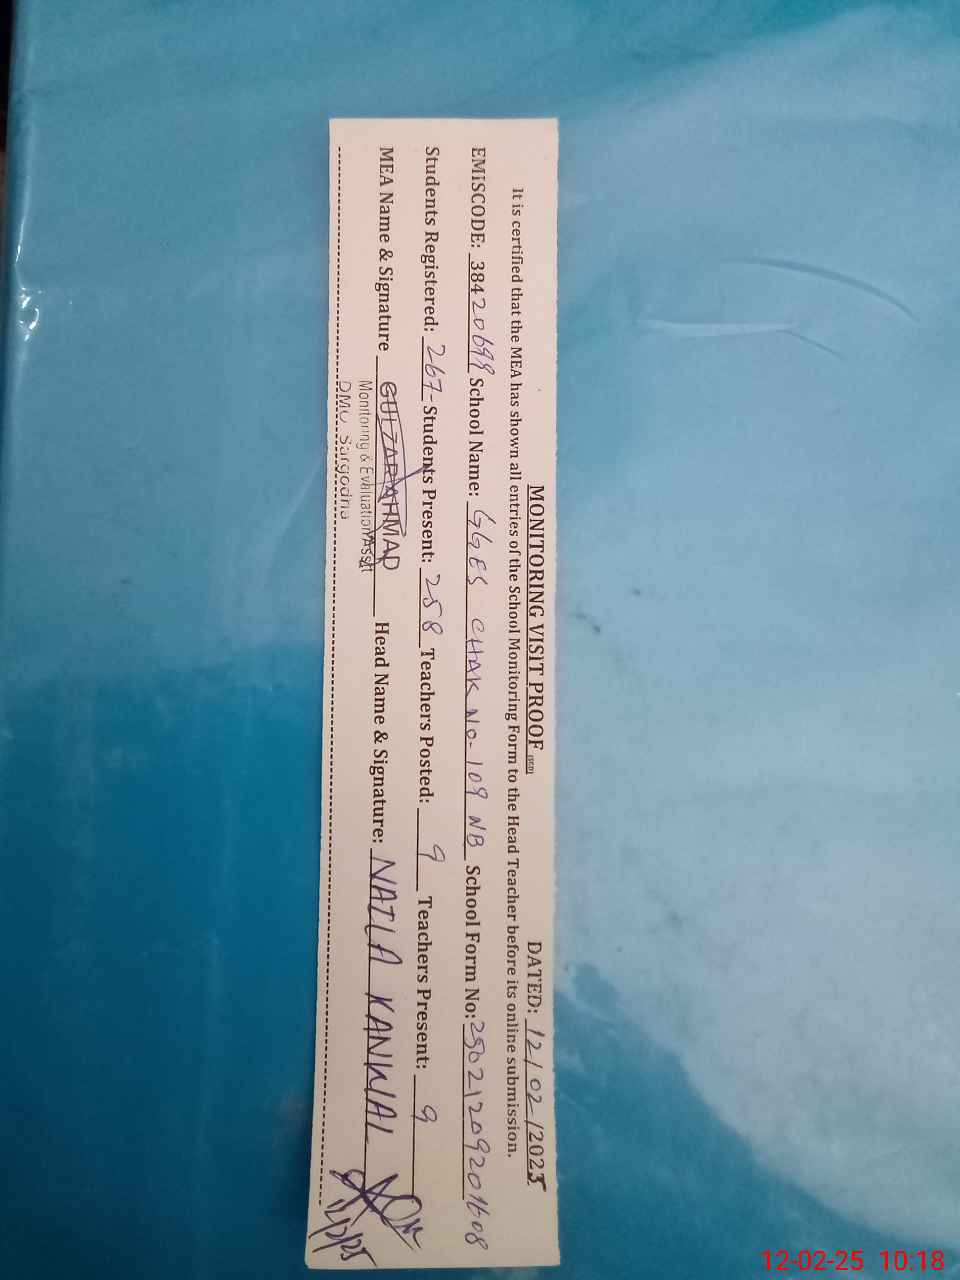 MONITORING VISIT PROOF (SED) DATED: 12/02/2025
It is certified that the MEA has shown all entries of the School Monitoring Form to the Head Teacher before its online submission.
EMiSCODE: 38420699 School Name: GGES CHAK NO-109 NB School Form No: 25021209201608
Students Registered: 267- Students Present: 258 Teachers Posted: 9 Teachers Present: 9
MEA Name & Signature GULZAR AHMAD Head Name & Signature: NAILA KANWAL
Monitoring & Evaluation Asstt
DMO Sargodha
12-02-25 10:18